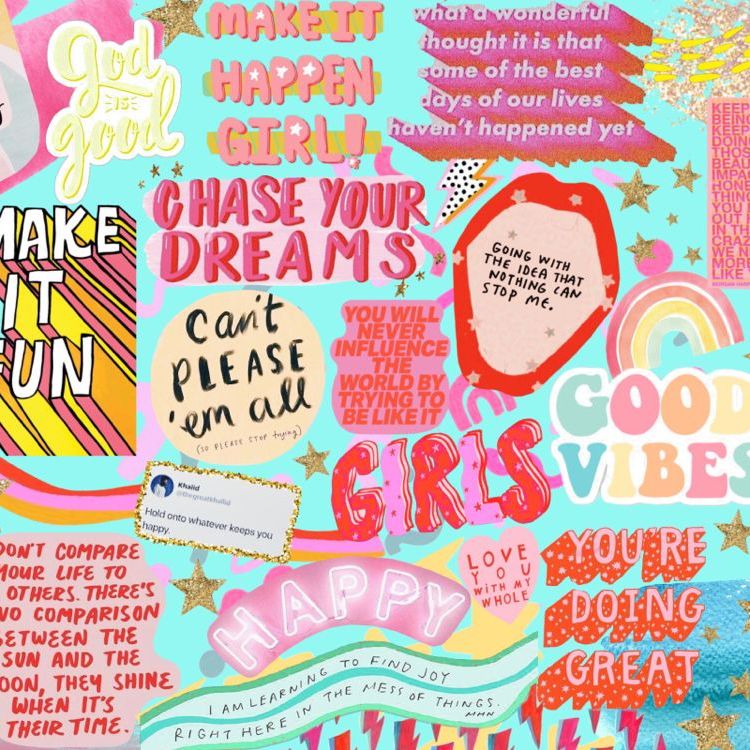 God
IS
good
MAKE IT
HAPPEN
GIRL!
what a wonderful
thought it is that
some of the best
days of our lives
haven't happened yet
KEEP
BEING
KEEP
DOING
THOS
BEAU
IMPAC
HONE
THIN
YOU
OUT
IN TH
CRAZ
WE N
MORE
LIKE
CHASE YOUR
DREAMS
GOING WITH
THE IDEA THAT
NOTHING CAN
STOP ME.
MAKE
IT
FUN
can't
PLEASE
'em all
(SO PLEASE STOP trying)
YOU WILL
NEVER
INFLUENCE
THE
WORLD BY
TRYING TO
BE LIKE IT
GOOD
VIBES
GIRLS
Khalid
@thegreatkhalid
Hold onto whatever keeps you
happy.
DON'T COMPARE
YOUR LIFE TO
OTHERS. THERE'S
NO COMPARISON
BETWEEN THE
SUN AND THE
MOON, THEY SHINE
WHEN IT'S
THEIR TIME.
HAPPY
LOVE
YOU
WITH MY
WHOLE
YOU'RE
DOING
GREAT
I AM LEARNING TO FIND JOY
RIGHT HERE IN THE MESS OF THINGS.
MHN